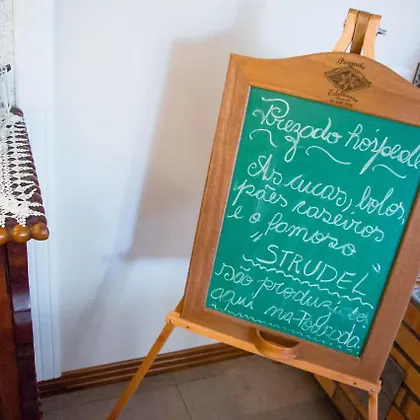 Pousada
Edelweiss
Prezado hóspede
As cucas, bolos,
pães caseiros
e o famoso
„STRUDEL"
são produzidos
aqui na Pousada.